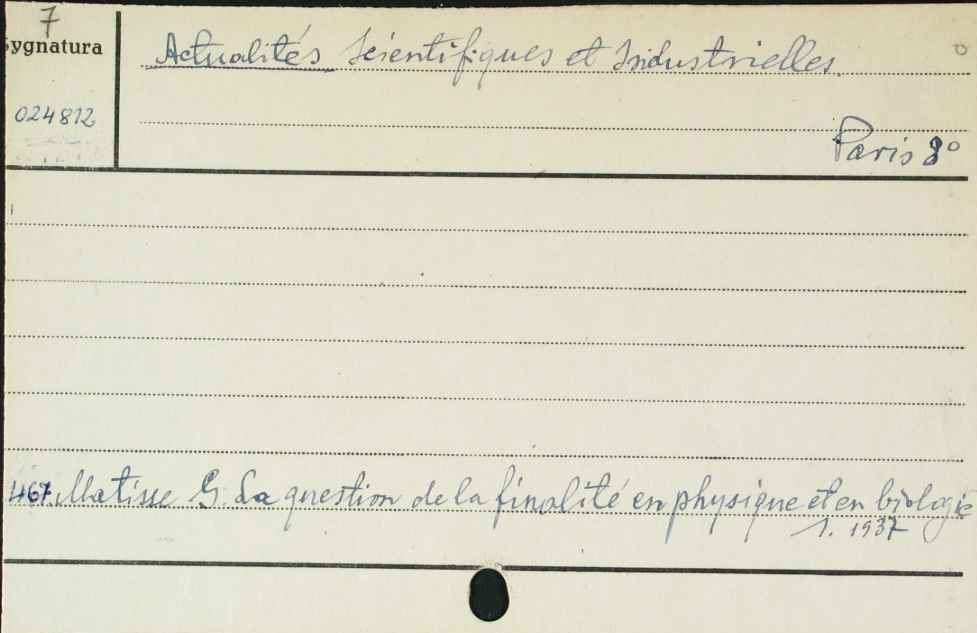 7
Sygnatura
Actualités Scientifiques et Industrielles.
024812
Paris 8°
467. Matisse G. La question de la finalité en physique et en biologie
1. 1937